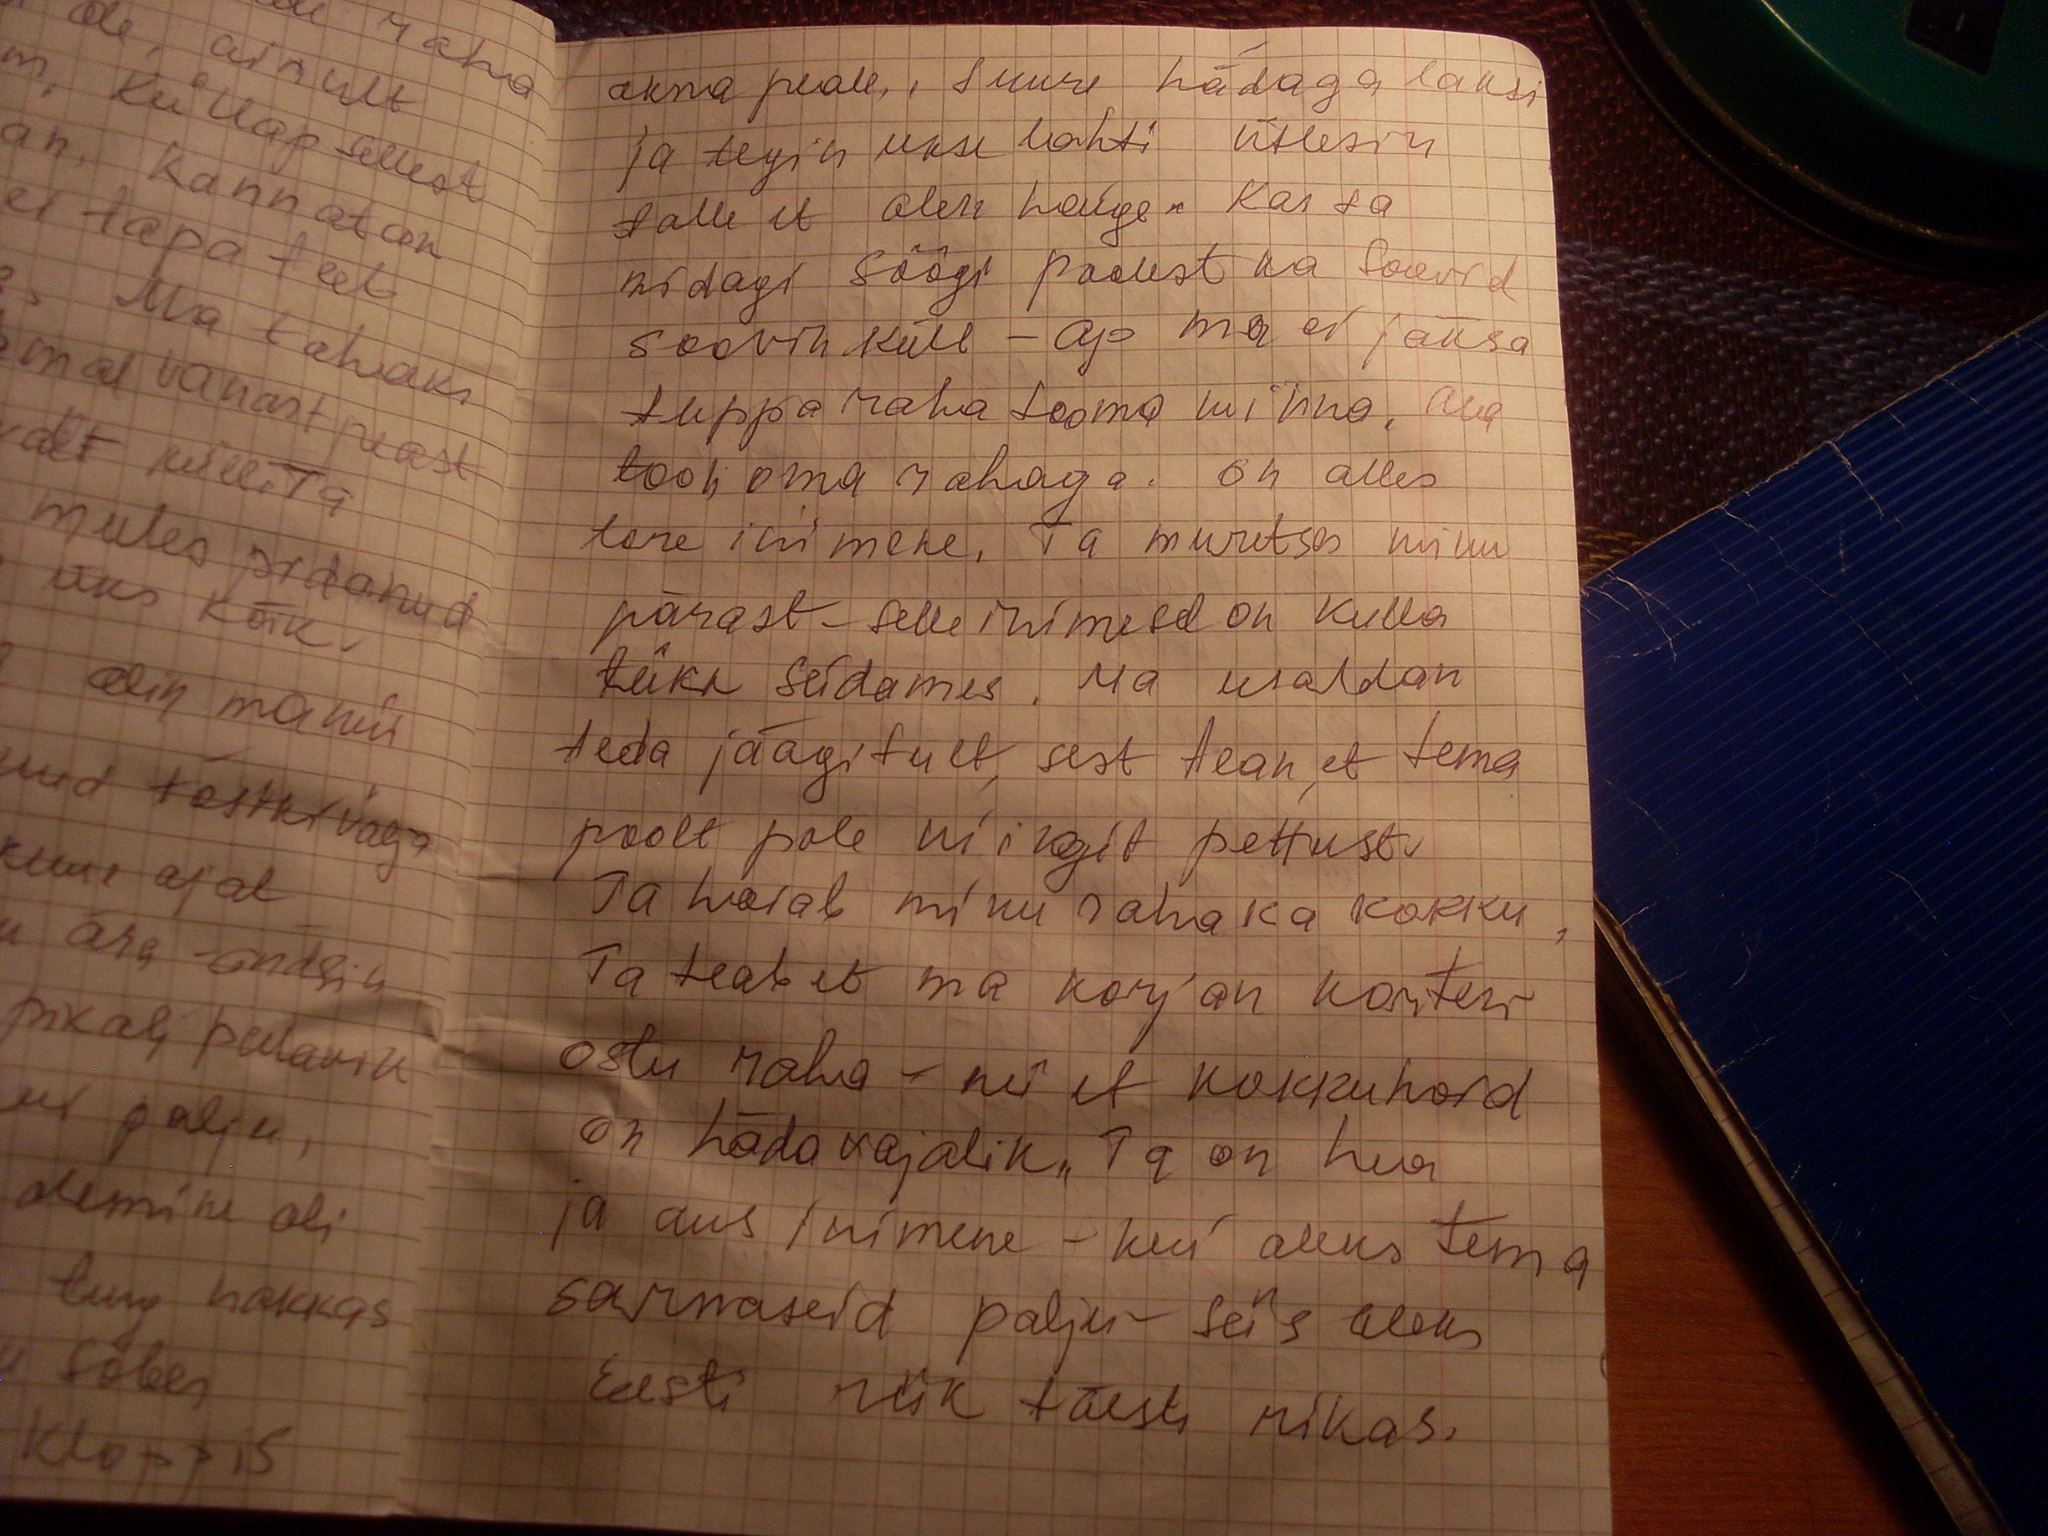 raha
ole, ainult
m, Küllap sellest
an. Kannatan
ei tapa teeb
Ma tahaks
omal vanast peast
küll. Ta
mules pidanud
üks kõik.
olin manu
nud tõstki välja
kuue ajal
u ära - andsin
pikali palavik
ui palju,
olemine oli
tung hakkas
u sõber
kloppis
akna peale, suure hädaga läksi
ja tegin ukse lahti ütlesin
talle et olen haige. Kas sa
midagi söögi poolest ka soovid
soovin küll - aga ma ei jäksa
tuppa raha tooma minna, ma
toon oma rahaga. on alles
tore inimene. Ta muretses minu
pärast - selle inimesel on kulla
tükk südames. Ma usaldan
teda jäägitult, sest tean, et tema
poolt pole niingit pettust.
Ta hoiab minu raha ka kokku,
Ta teab et ma korjan korteri
ostu raha - nii et kokkuhoid
on hädavajalik. Ta on hea
ja aus inimene - kui oleks tema
sarnaseid palju - siis oleks
Eesti riik tõesti rikas.